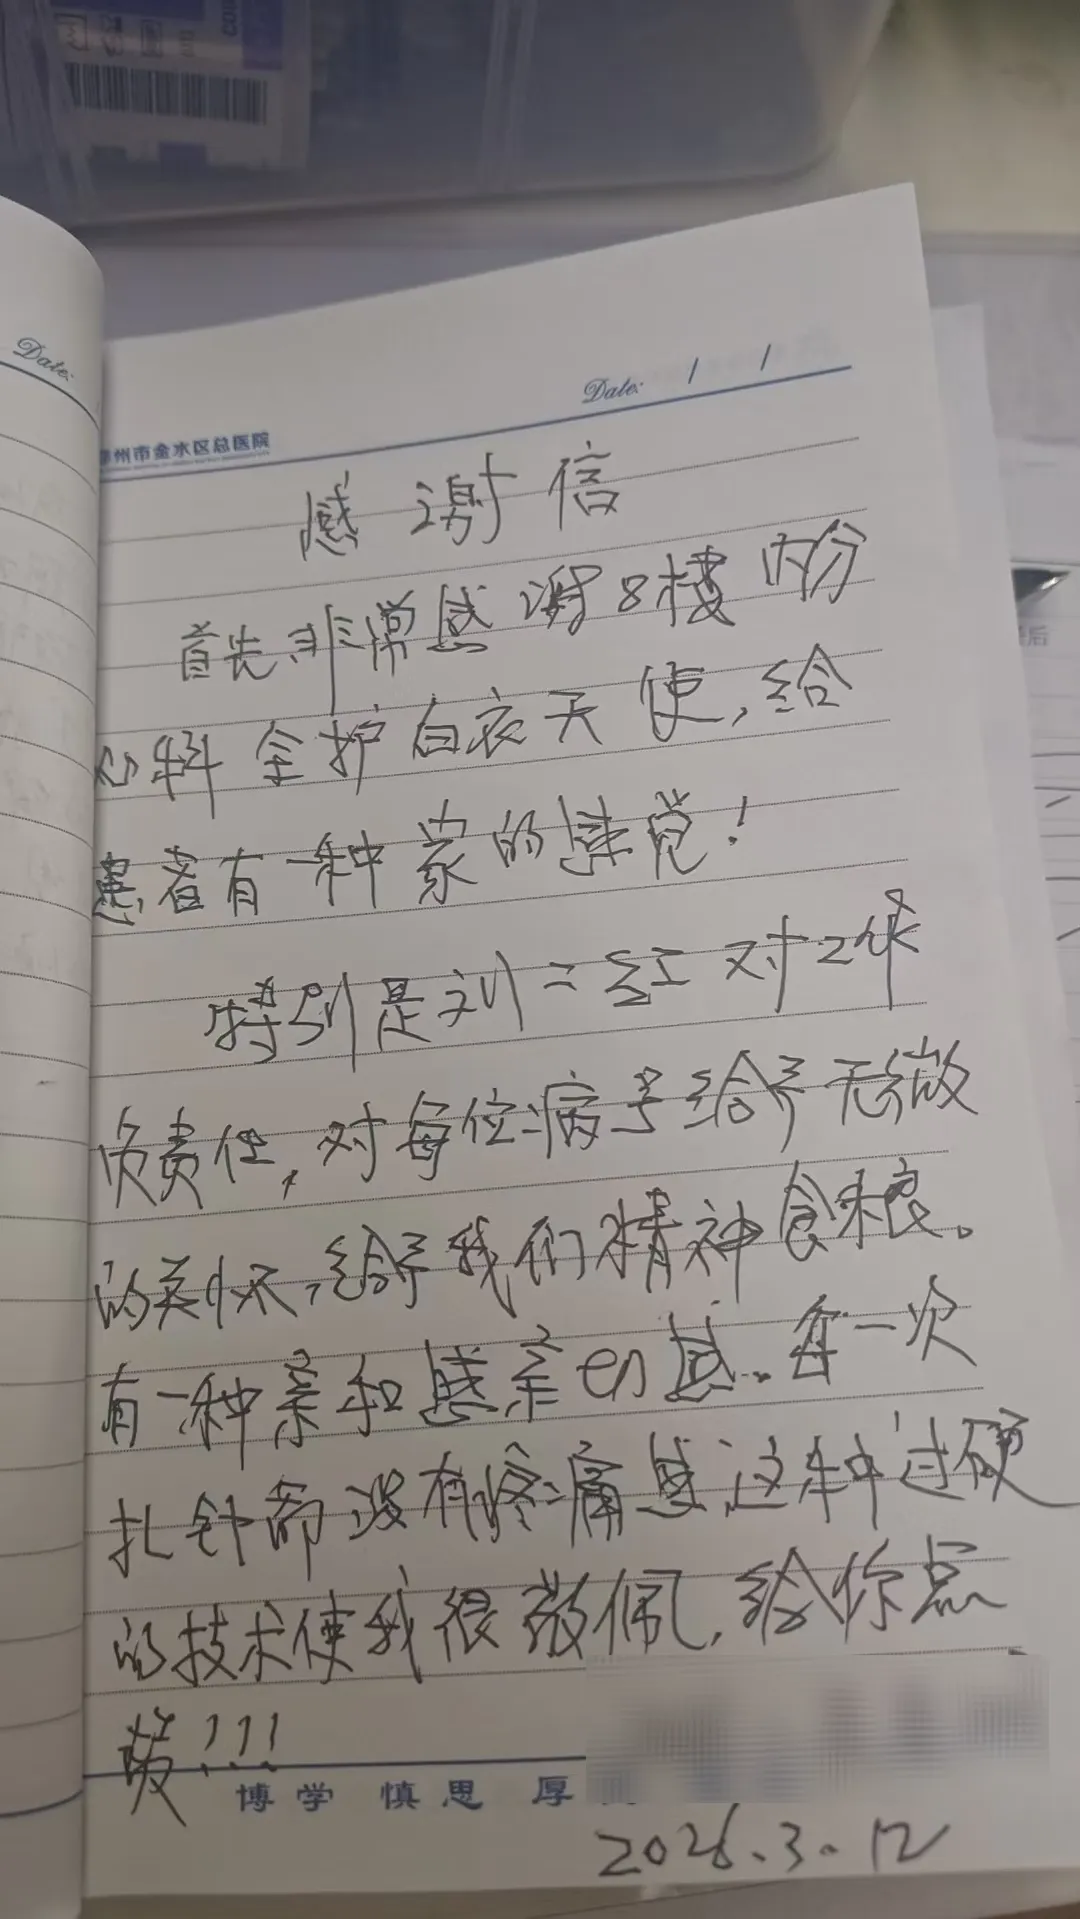 Date:
Date: / /
郑州市金水区总医院
感谢信
首先非常感谢8楼内分
心科全护白衣天使,给
患者有一种家的感觉!
特别是刘二红对工作
负责任,对每位病号给予无微
的关怀,给予我们精神食粮。
有一种亲和感亲切感..每一次
扎针都没有疼痛感,这种过硬
的技术使我很敬佩,给你点
赞!!!
博学 慎思 厚
2026.3.12
后